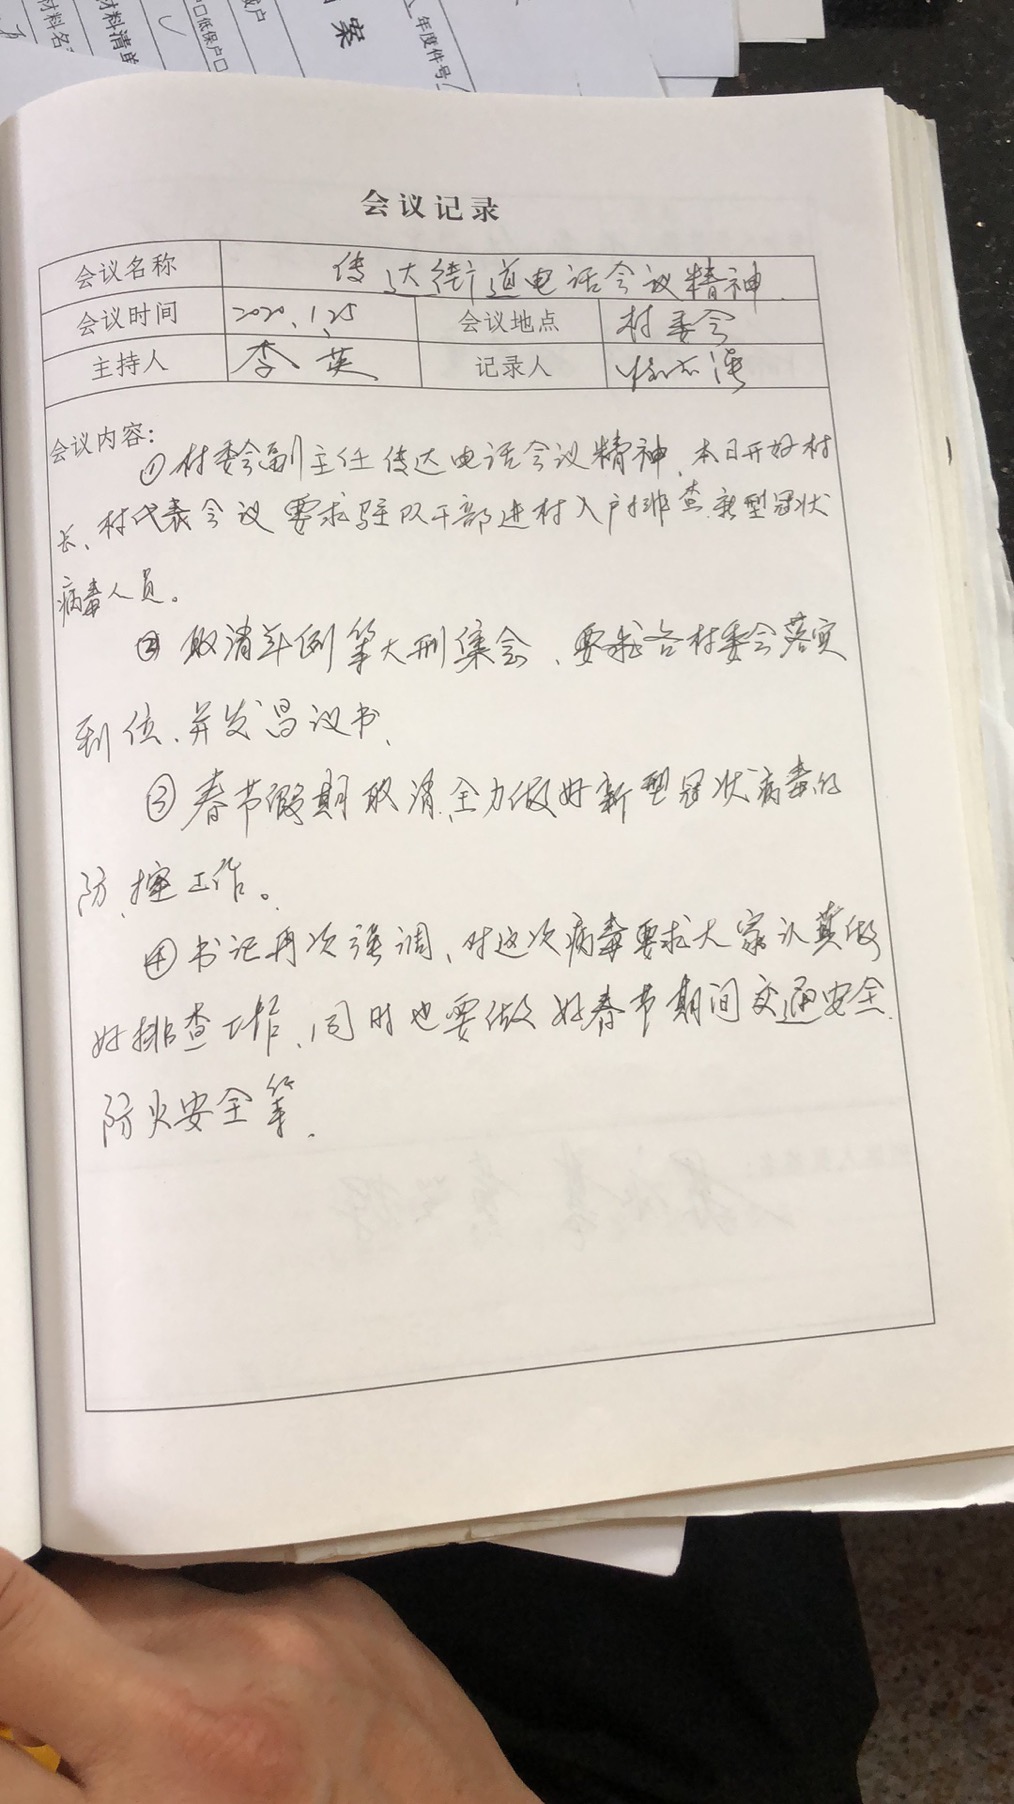 案
年度件号
口低保户口
材料清单
材料名
会议记录
会议名称 传达街道电话会议精神.
会议时间 2020.1.25 会议地点 村委会
主持人 李英 记录人
会议内容:
① 村委会副主任传达电话会议精神、本日开好村
长、村代表会议要求驻队干部进村入户排查新型冠状
病毒人员。
② 取消年例等大型集会、要求各村委会落实
到位、并发昌议书、
③ 春节假期取消、全力做好新型冠状病毒的
防、控工作。
④ 书记再次强调、对这次病毒要求大家认真做
好排查工作、同时也要做好春节期间交通安全.
防火安全等.